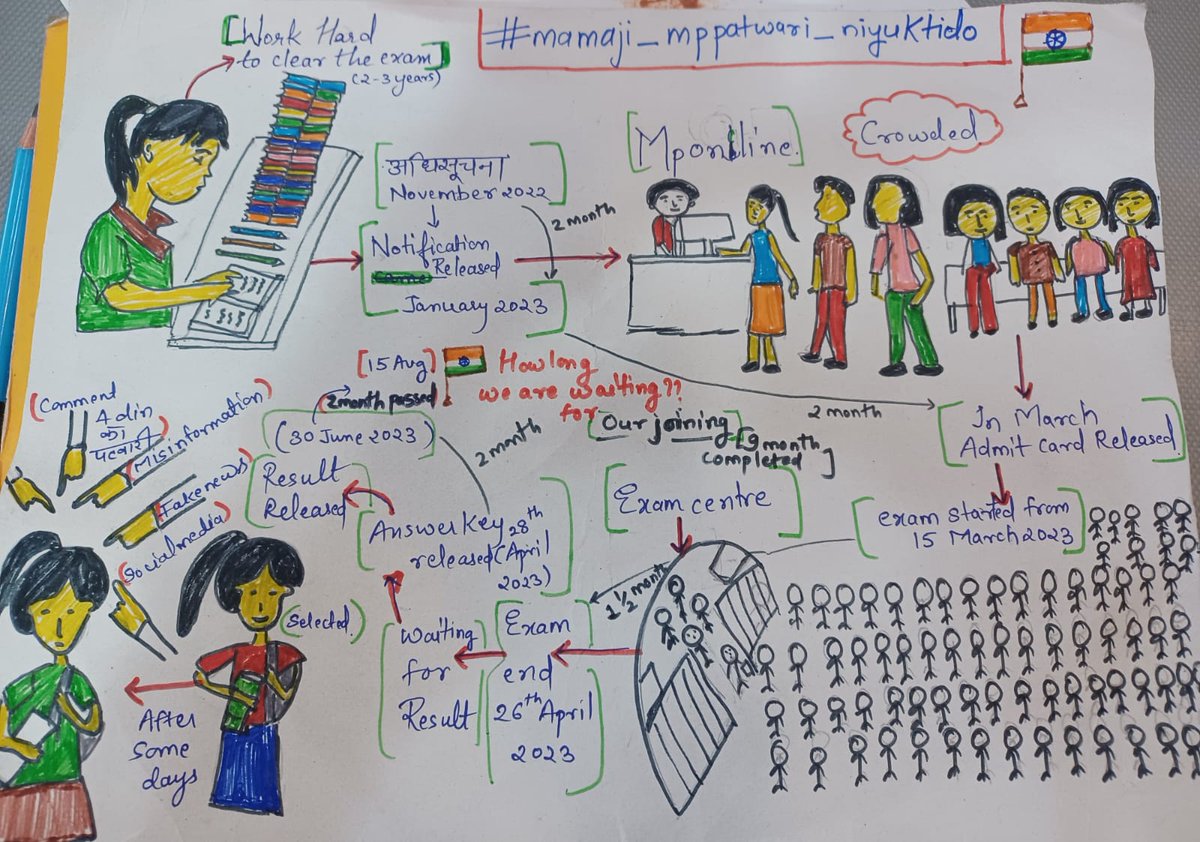 [Work Hard
to clear the exam]
(2-3 years)
#mamaji_mppatwari_niyuktido
अधिसूचना
November 2022
2 month
Notification
Released
January 2023
[Mponline.]
Crowded
2 month
In March
Admit card Released
exam started from
15 March 2023
Exam centre
1 1/2 month
Exam
end
26th April
2023
Waiting
for
Result
Answer Key 28th
released (April
2023)
2 month
Result
Released
(30 June 2023)
2 month passed
[15 Aug]
How long
we are waiting??
for
Our joining
[9 month
completed]
(Selected)
After
some
days
(Comment
4 din
का
पटवारी)
(Misinformation)
(Fake news
(Social media)